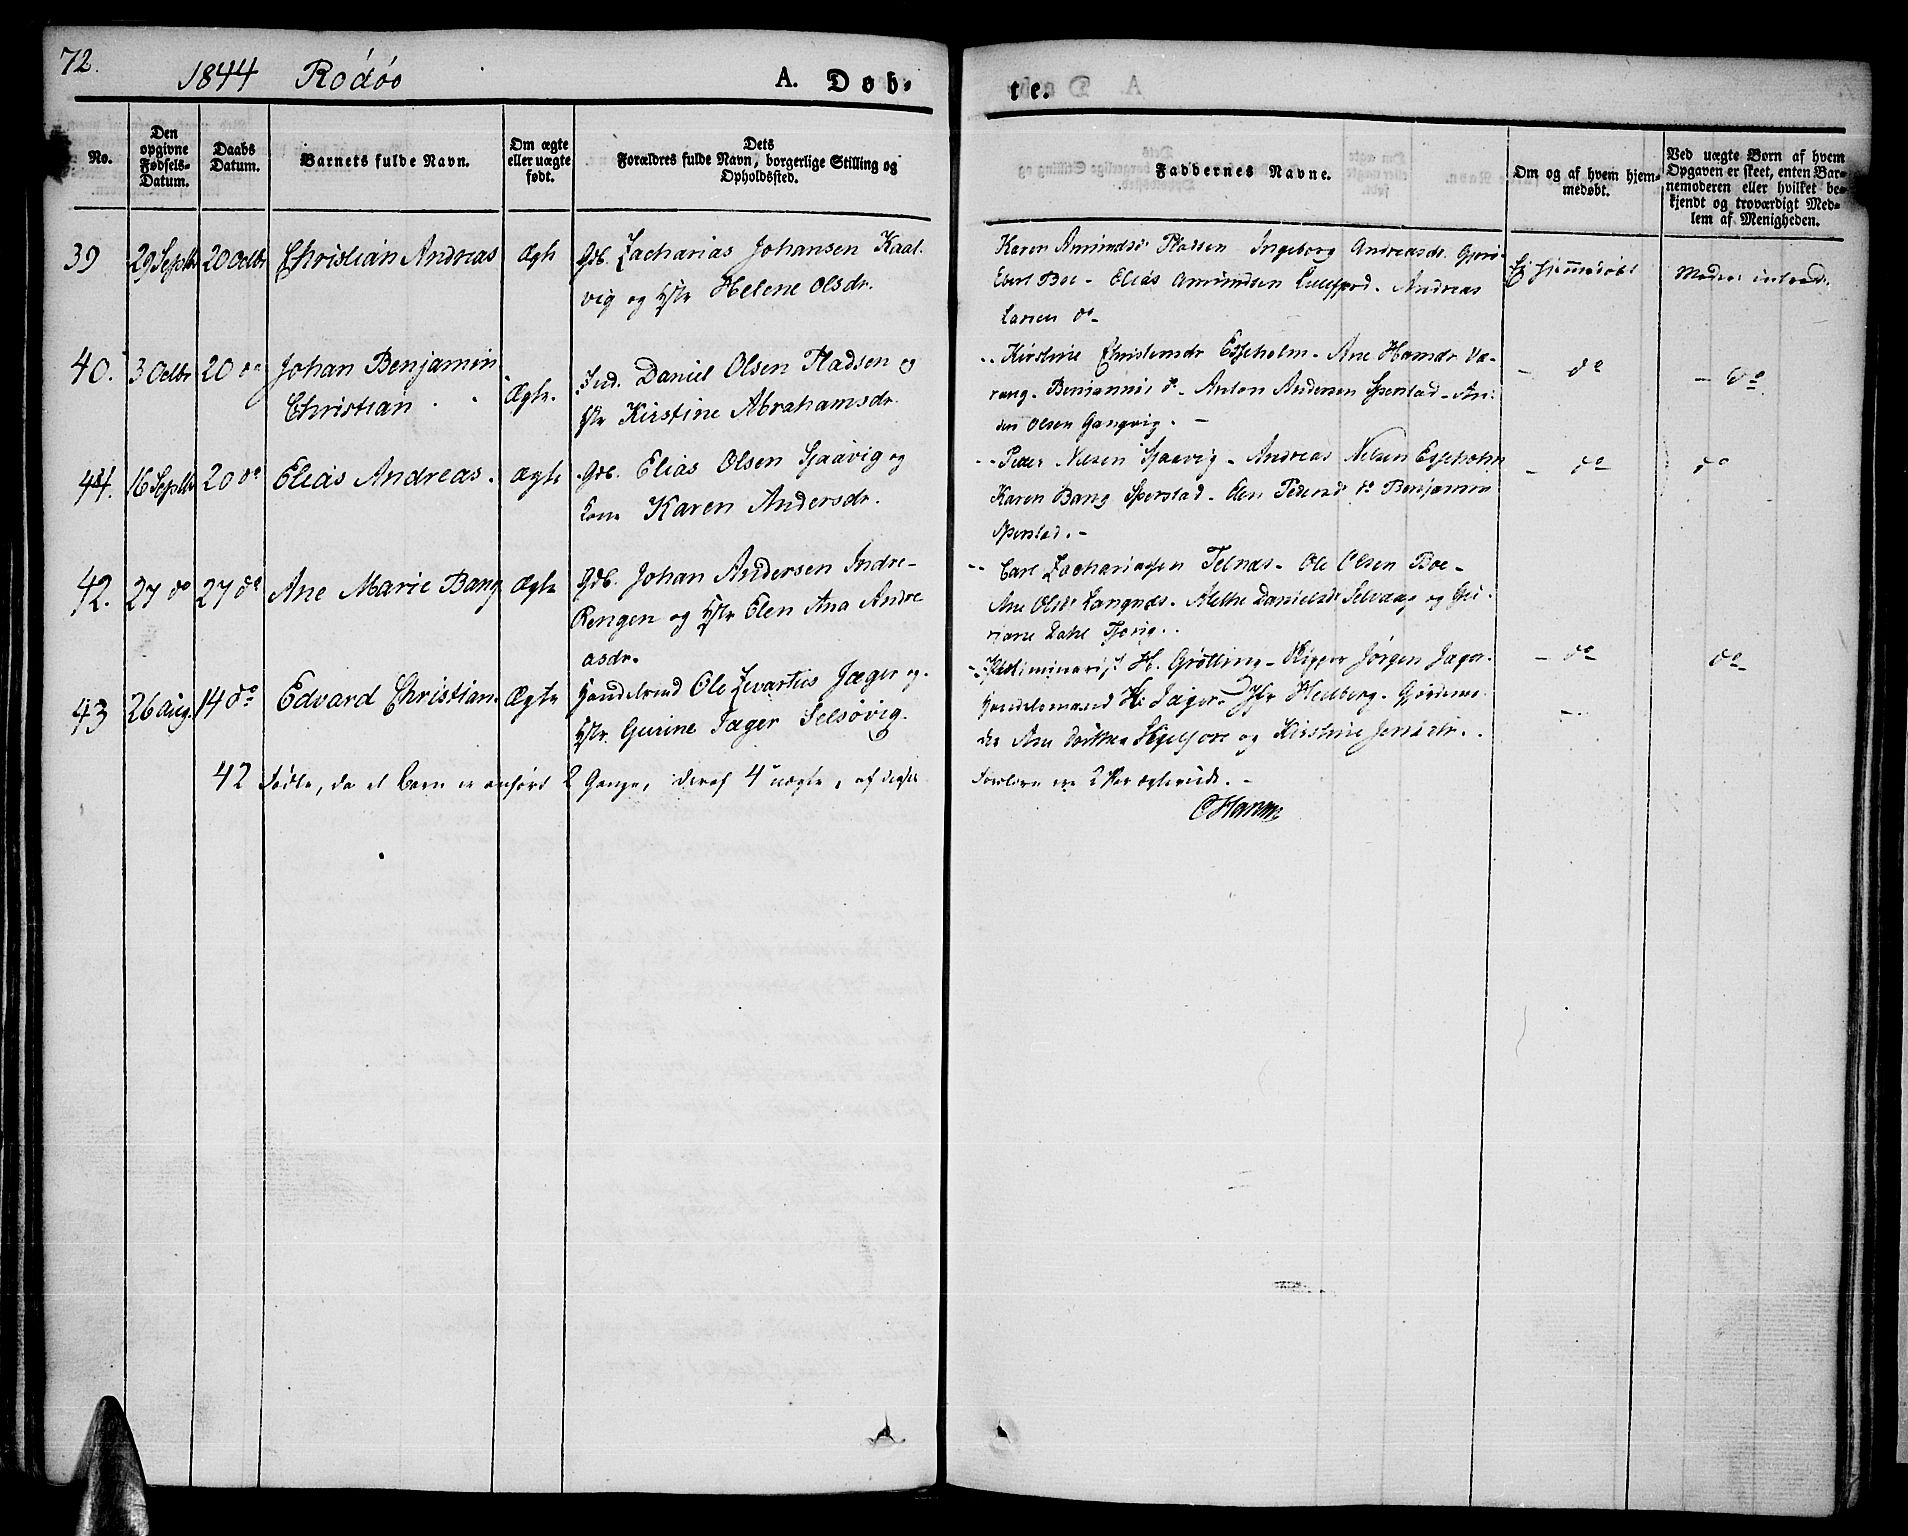 72.
1844 Rodöo
A. Døb-
te.
No.
Den opgivne Fødsels-Datum.
Daabs Datum.
Barnets fulde Navn.
Om ægte eller uægte født.
Dets Forældres fulde Navn, borgerlige Stilling og Opholdssted.
Faddernes Navne.
Om og af hvem hjem-medøbt.
Ved uægte Børn af hvem Opgaven er skeet, enten Bar-nemoderen eller hvilket be-kjendt og troværdigt Med-lem af Menigheden.
39 29 Septbr 20 Octbr Christian Andreas Ægte Gdb. Zacharias Johansen Kaal-
vig og Hstr Helene Olsdr.
Karen Amundsd. Pladsen Ingeborg Andreasdr.
Ebert Boe - Elias Amundsen - Andreas
Larsen do
Ej hjemmedøbt
40. 3 Octbr 20 do Johan Benjamin
Christian Ægte.
Ind. Daniel Olsen Pladsen og
Hstr Kirstine Abrahamsdr.
Kirstine Christensdr Esseholm - Ane Hansdr Væ-
rang - do - Anton Andersen Sperstad - An-
ders Olsen Gangvig. -
- do
- do
41. 16 Septbr 20 do Elias Andreas. Ægte Gdb. Elias Olsen Sjaavig og
Kone Karen Andersdr.
Peder Nilsen Sjaavig - Andreas Nilsen Esseholm
Karen Bang Sperstad - Elen Pedersd do Benjamin
Sperstad. -
- do
do
42. 27 do 27 do Ane Marie Bang Ægte Gdb. Johan Andersen Indre-
Rengen og Hstr Elen Ana Andre
asdr.
Carl Zachariassen Telnæs - Ole Olsen Boe -
Ane Olsd Langnæs - Danielsd Selvaag og Gu-
riane Dahl
- do
do
43 26 Aug. 14 do Edvard Christian. Ægte Handelsmd Ole Zevartius Jæger og
Hstr. Gurine Jæger Selsövig.
H. Grötting - Skipper Jörgen Jæger.
Handelsmand H. Jæger - Hedberg -
Ane Dorthea og Kirstine Jensdr.
42 Födte, da et Barn er anført 2 Gange, deraf 4 uægte, af disse
Forældre ere 2 Par
C Hansen